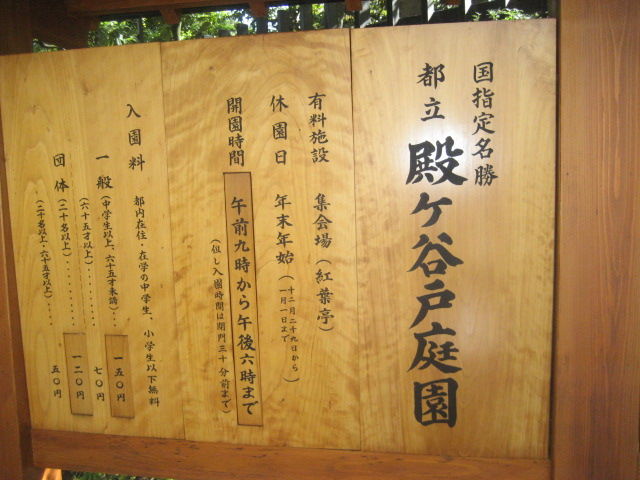 国指定名勝
都立 殿ヶ谷戸庭園
有料施設 集会場(紅葉亭)
休園日 年末年始(十二月二十九日から一月一日まで)
開園時間 午前九時から午後六時まで
(但し入園時間は閉門三十分前まで)
入園料 都内在住・在学の中学生、小学生以下無料
一般(中学生以上、六十五才未満)… 一五〇円
(六十五才以上)……… 七〇円
団体(二十名以上)……… 一二〇円
(二十名以上・六十五才以上)… 五〇円